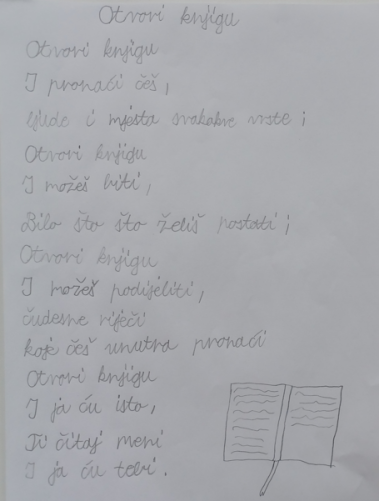 Otvori knjigu
Otvori knjigu
I pronaći češ,
ljude i mjesta svakakve vrste ;
Otvori knjigu
I možeš biti,
Bilo što što želiš postati ;
Otvori knjigu
I možeš podijeliti,
čudesne riječi
koje češ unutra pronaći
Otvori knjigu
I ja ću isto,
Ti čitaj meni
I ja ću tebi.